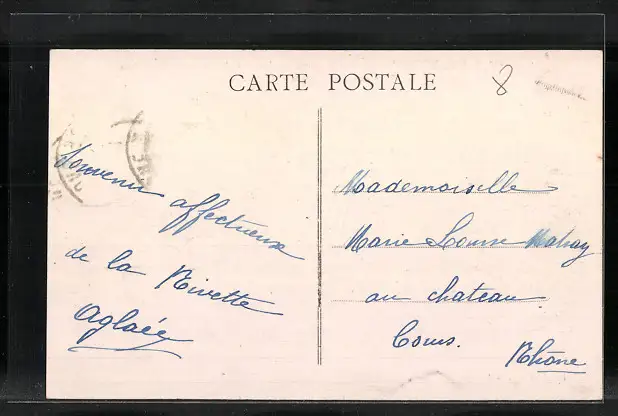 CARTE POSTALE
8
Souvenir affectueux
de la Rivette
Aglaée
Mademoiselle
Marie Louise
au chateau
Cours.
Rhône